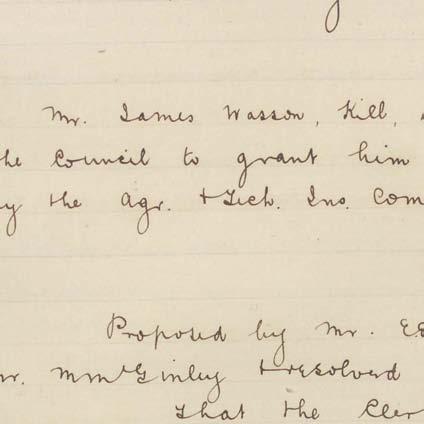 Mr. James Wasson, Kill,
the Council to grant him
by the Agr. & Tech. Ins. Com
Proposed by Mr. E.E
Mr. M McGinley & resolved
that the Cler